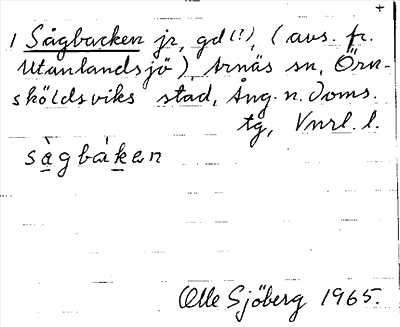 +
1 Sågbacken jr, gd(!), (avs. fr.
Utanlandsjö), Arnäs sn, Örn-
sköldsviks stad, Ång. n. Doms.
tg, Vnrl. l.
sàgbàken
Olle Sjöberg 1965.